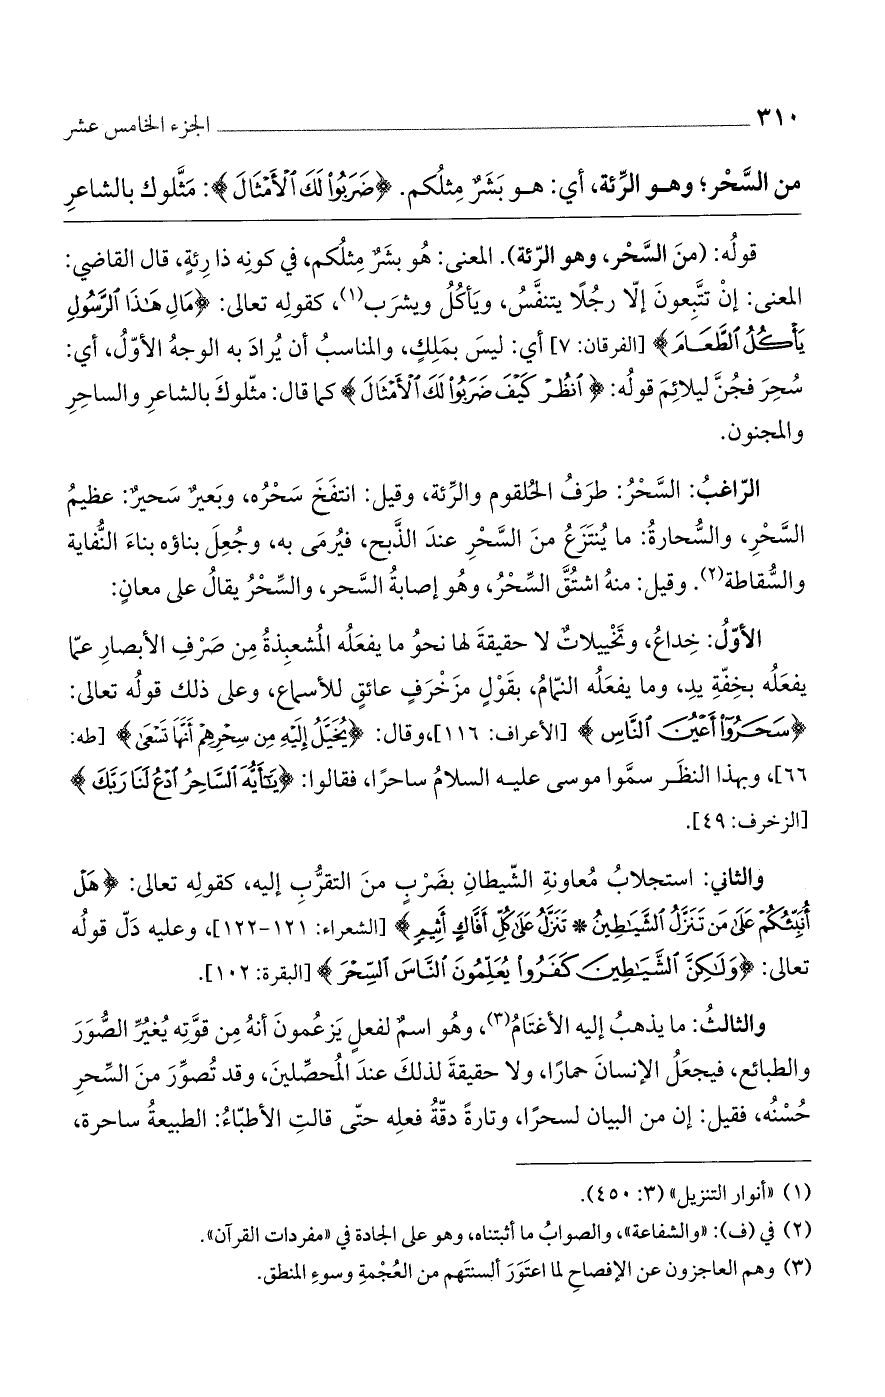 ٣١٠ ــــــــــــــــــــــــــــــــــــــــــــــــ الجزء الخامس عشر
من السَّحْر؛ وهـو الرِّئة، أي: هـو بَشَرٌ مِثلُكم. ﴿ضَرَبُوا۟ لَكَ ٱلْأَمْثَالَ﴾: مَثَّلوك بالشاعرِ
قولُه: (منَ السَّحْر، وهو الرّئة). المعنى: هُو بشَرٌ مِثلُكم، في كونِه ذا رِئةٍ، قال القاضي:
المعنى: إنْ تتَّبِعونَ إلّا رجُلًا يتنفَّسُ، ويَأكُلُ ويشرَب(١)، كقولِه تعالى: ﴿مَالِ هَٰذَا ٱلرَّسُولِ
يَأْكُلُ ٱلطَّعَامَ﴾ [الفرقان: ٧] أي: ليسَ بمَلِكٍ، والمناسبُ أن يُرادَ به الوجهُ الأوّلُ، أي:
سُحِرَ فجُنَّ ليلائِمَ قولُه: ﴿ٱنظُرْ كَيْفَ ضَرَبُوا۟ لَكَ ٱلْأَمْثَالَ﴾ كما قال: مثّلوكَ بالشاعرِ والساحِرِ
والمجنون.
الرّاغبُ: السَّحْرُ: طرَفُ الحُلقوم والرِّئة، وقيل: انتفَخَ سَحْرُه، وبَعيرٌ سَحيرٌ: عظيمُ
السَّحْرِ، والسُّحارةُ: ما يُنتَزَعُ منَ السَّحْرِ عندَ الذَّبح، فيُرمَى به، وجُعِلَ بناؤه بناءَ النُّفاية
والسُّقاطة(٢). وقيل: منهُ اشتُقَّ السِّحْرُ، وهُو إصابةُ السَّحر، والسِّحْرُ يقالُ على معانٍ:
الأوّلُ: خِداعُ، وتَخْييلاتٌ لا حقيقةَ لها نحوُ ما يفعَلُه المُشعبِذةُ مِن صَرْفِ الأبصارِ عمّا
يفعَلُه بخِفّةِ يدٍ، وما يفعَلُه النمّامُ، بقَوْلٍ مزَخْرَفٍ عائقٍ للأسماع، وعلى ذلك قولُه تعالى:
﴿سَحَرُوٓا۟ أَعْيُنَ ٱلنَّاسِ﴾ [الأعراف: ١١٦]،وقال: ﴿يُخَيَّلُ إِلَيْهِ مِن سِحْرِهِمْ أَنَّهَا تَسْعَىٰ﴾ [طه:
٦٦]، وبهذا النظَر سمَّوا موسى عليـه السلامُ ساحرًا، فقالوا: ﴿يَٰٓأَيُّهَ ٱلسَّاحِرُ ٱدْعُ لَنَا رَبَّكَ﴾
[الزخرف: ٤٩].
والثاني: استجلابُ مُعاونةِ الشّيطان بضَرْبٍ منَ التقرُّبِ إليه، كقولِه تعالى: ﴿هَلْ
أُنَبِّئُكُمْ عَلَىٰ مَن تَنَزَّلُ ٱلشَّيَٰطِينُ * تَنَزَّلُ عَلَىٰ كُلِّ أَفَّاكٍ أَثِيمٍ﴾ [الشعراء: ١٢١-١٢٢]، وعليه دَلّ قولُه
تعالى: ﴿وَلَٰكِنَّ ٱلشَّيَٰطِينَ كَفَرُوا۟ يُعَلِّمُونَ ٱلنَّاسَ ٱلسِّحْرَ﴾ [البقرة: ١٠٢].
والثالثُ: ما يذهبُ إليه الأغتَامُ(٣)، وهُو اسمٌ لفعلٍ يَزعُمونَ أنهُ مِن قوَّتِه يُغيِّرُ الصُّوَرَ
والطبائع، فيجعَلُ الإنسانَ حمارًا، ولا حقيقةَ لذلكَ عندَ المُحصِّلينَ، وقد تُصوِّرَ منَ السِّحرِ
حُسْنُه، فقيل: إن من البيان لسحرًا، وتارةً دقّةُ فعلِه حتّى قالتِ الأطبّاءُ: الطبيعةُ ساحرة،
(١) «أنوار التنزيل» (٣: ٤٥٠).
(٢) في (ف): «والشفاعة»، والصوابُ ما أثبتناه، وهو على الجادة في «مفردات القرآن».
(٣) وهم العاجزون عن الإفصاحِ لما اعتَوَرَ ألسنتَهم من العُجْمةِ وسوءِ المنطق.